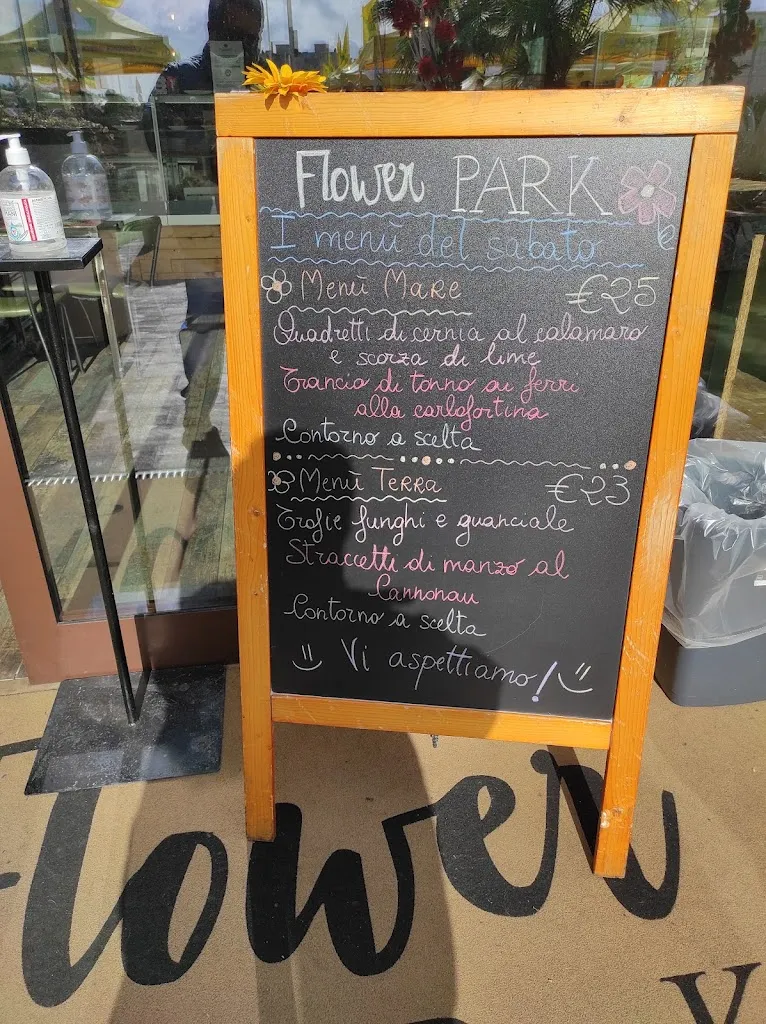 Flower PARK
I menù del sabato
Menù Mare €25
Quadretti di cernia al calamaro
e scorza di lime
Trancio di tonno ai ferri
alla carlofortina
Contorno a scelta
Menù Terra €23
Trofie funghi e guanciale
Straccetti di manzo al
Cannonau
Contorno a scelta
Vi aspettiamo!
Flower